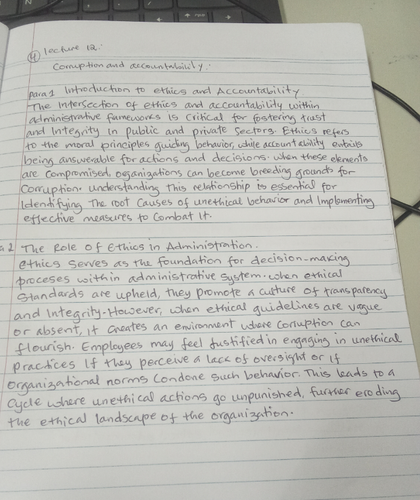 (4) lecture 12:
Corruption and accountability:
para 1 Introduction to ethics and Accountability
The Intersection of ethics and accountability within
administrative frameworks is critical for fostering trust
and Integrity in public and private sectors. Ethics refers
to the moral principles guiding behavior, while accountability entails
being answerable for actions and decisions. when these elements
are compromised, organizations can become breeding grounds for
Corruption. understanding This relationship is essential for
Identifying The root Causes of unethical behavior and Implementing
effective measures to Combat it.
2 The Role of Ethics in Administration.
ethics serves as the foundation for decision-making
proceses within administrative system. when ethical
standards are upheld, they promote a culture of transparency
and Integrity. However, when ethical guidelines are vague
or absent, it creates an environment where corruption can
flourish. Employees may feel justified in engaging in unethical
practices If they perceive a lack of oversight or if
organizational norms Condone such behavior. This leads to a
Cycle where unethical actions go unpunished, further eroding
the ethical landscape of the organization.